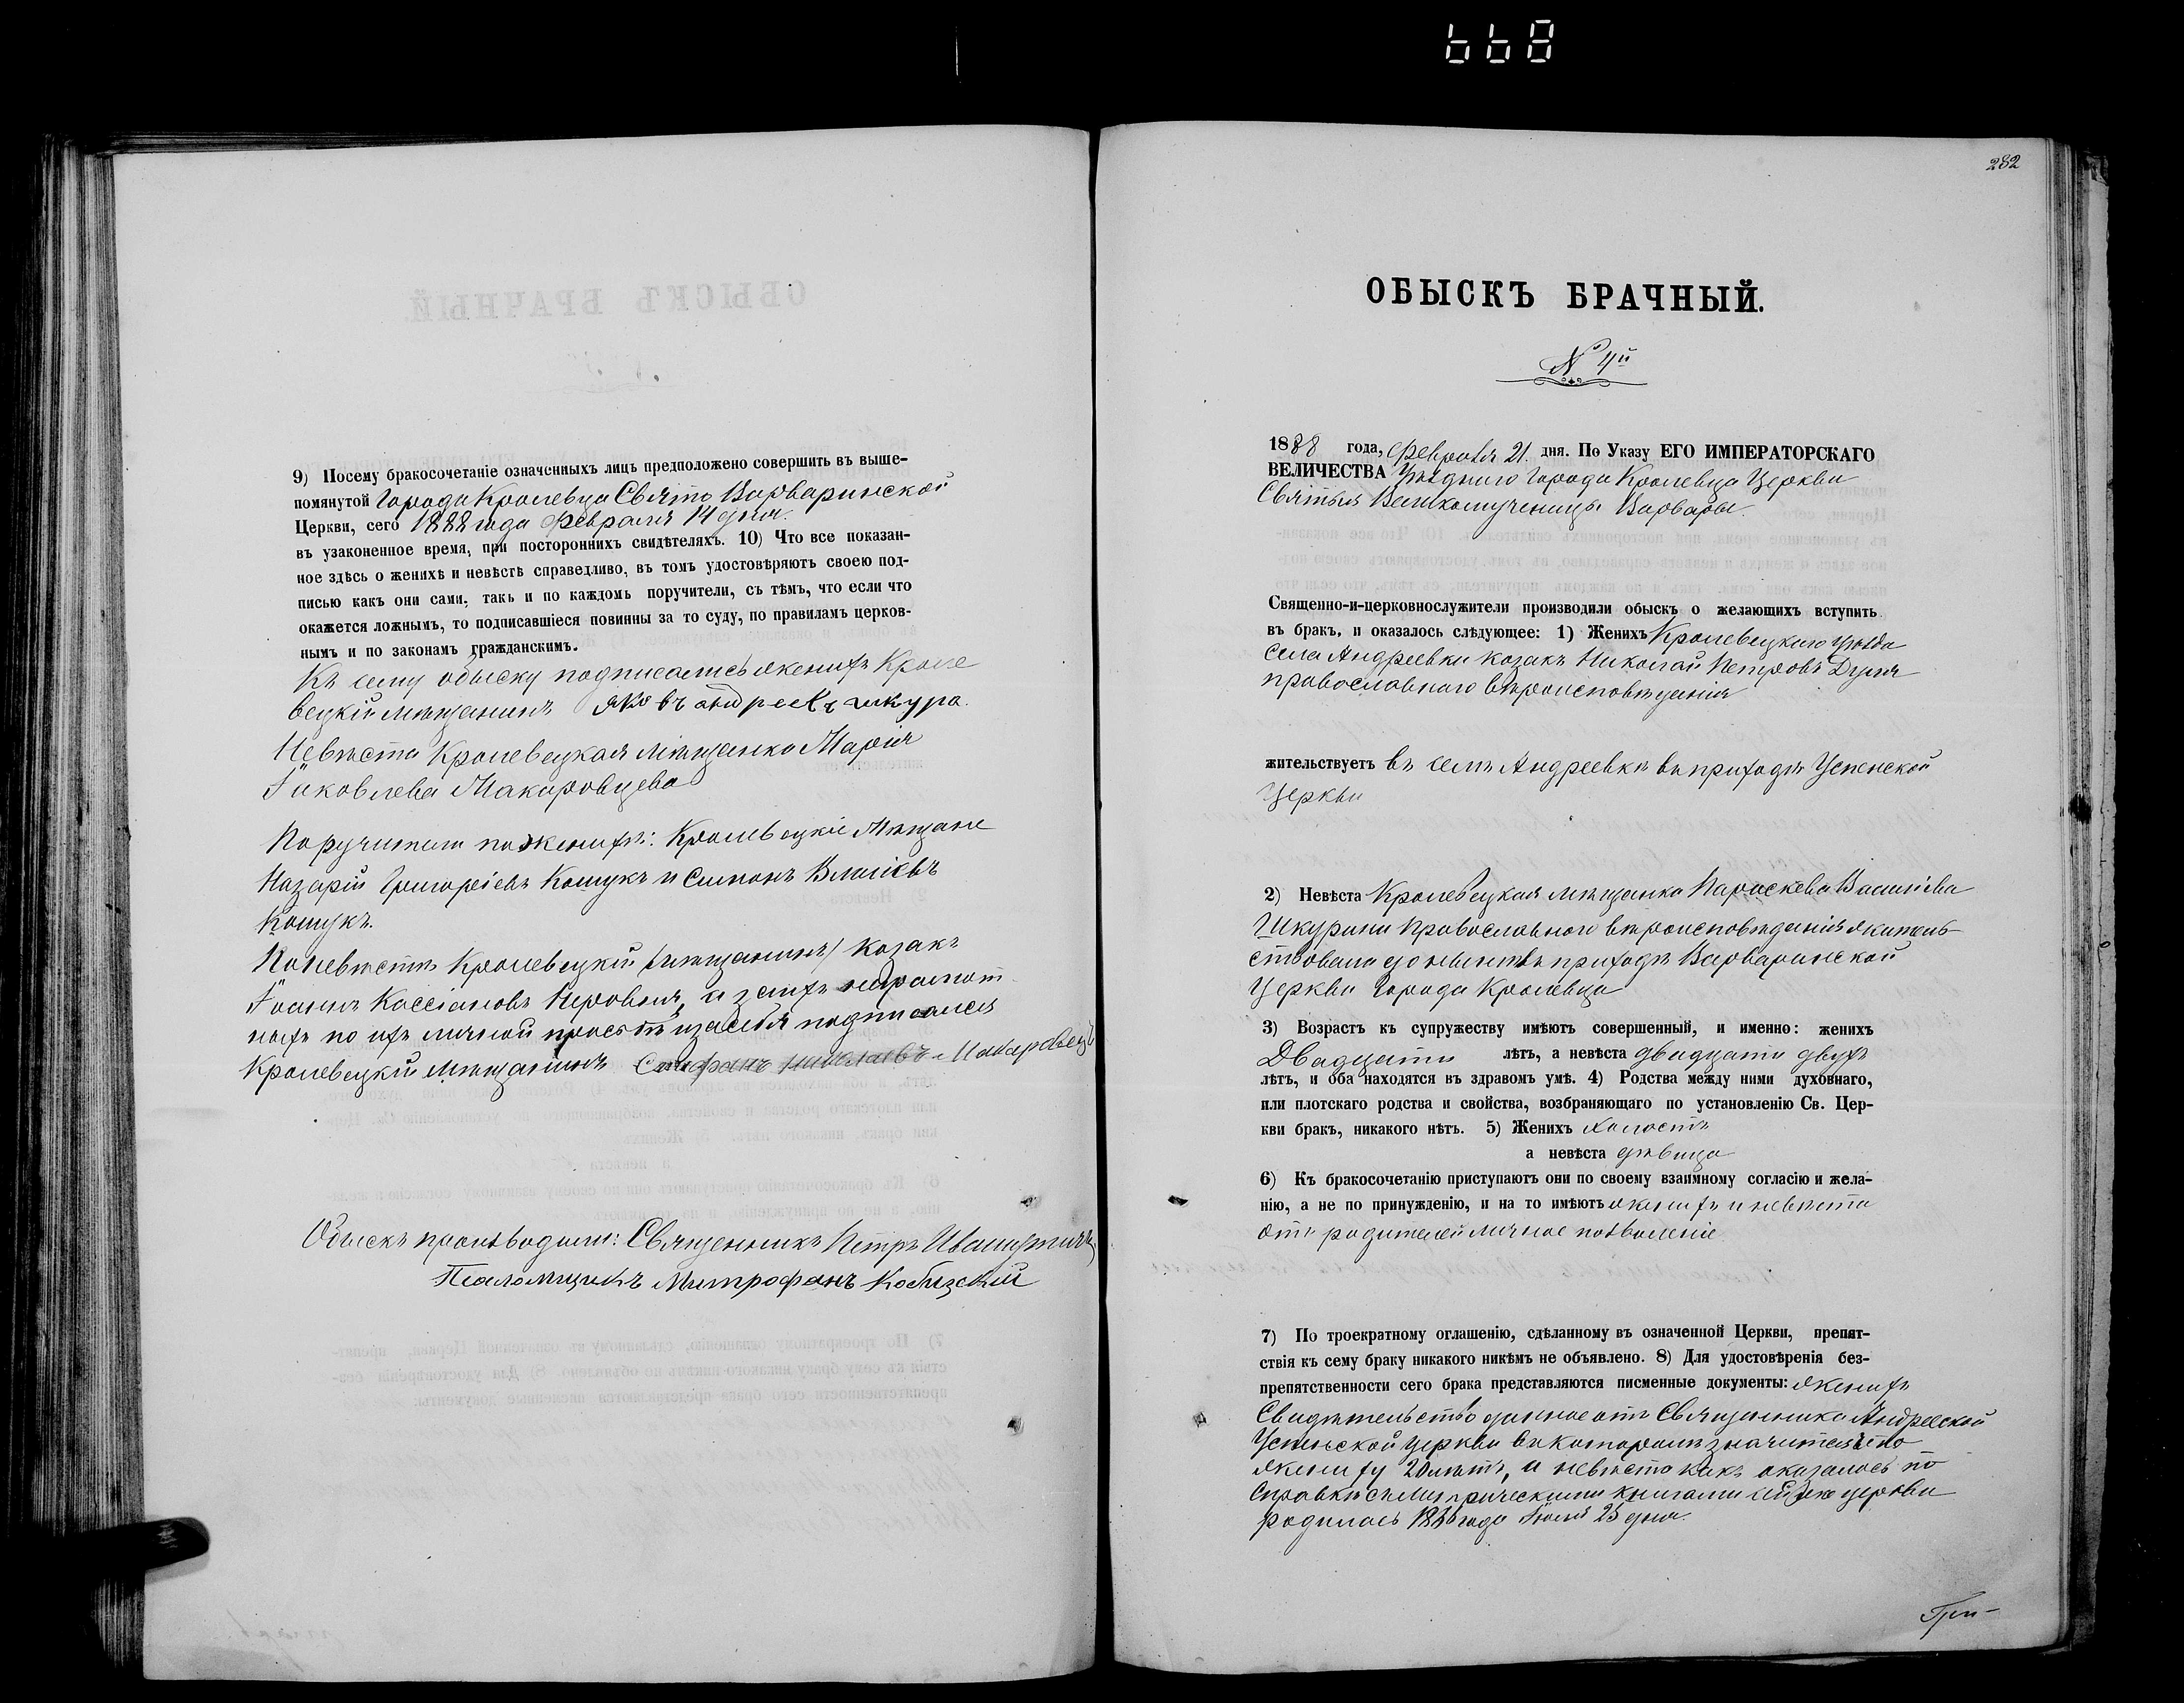 668
9) Посему бракосочетаніе означенныхъ лицъ предположено совершить въ выше-
помянутой Города Кролевца Свято Варваринской
Церкви, сего 1888 года Февраля 14 дня.
въ узаконенное время, при постороннихъ свидѣтеляхъ. 10) Что все показан-
ное здѣсь о женихѣ и невѣстѣ справедливо, въ томъ удостовѣряютъ своею под-
писью какъ они сами, такъ и по каждомъ поручители, съ тѣмъ, что если что
окажется ложнымъ, то подписавшіеся повинны за то суду, по правиламъ церков-
нымъ и по законамъ гражданскимъ.
Къ сему обыску подписались женихъ Кроле
вецкій мѣщанинъ Яковъ андреевъ шкура.
Невѣста Кролевецкая мѣщанка Марія
Іаковлева Макаровцева
Поручители по женихѣ: Кролевецкіе Мѣщане
Назарій Григоріевъ Кошукъ и Симонъ
Кошукъ.
По невѣстѣ Кролевецкій (мѣщанинъ) козакъ
Іоаннъ Кассіановъ а за ихъ неграмот
ныхъ по ихъ личной просьбѣ и за себя подписался
Кролевецкій мѣщанинъ Стефанъ Макаровецъ
Обыскъ производили: Священникъ Петръ
Псаломщикъ Митрофанъ Кобызскій
282
ОБЫСКЪ БРАЧНЫЙ.
N 4й
1888 года, Февраля 21. дня. По Указу ЕГО ИМПЕРАТОРСКАГО
ВЕЛИЧЕСТВА Уѣзднаго Города Кролевца Церкви
Святыя Великомученицы Варвары.
Священно-и-церковнослужители производили обыскъ о желающихъ вступить
въ бракъ, и оказалось слѣдующее: 1) Женихъ Кролевецкаго уѣзда
Села Андреевки козакъ Николай Петровъ Дуля
православнаго вѣроисповѣданія
жительствуетъ въ селѣ Андреевкѣ въ приходѣ Успенской
Церкви
2) Невѣста Кролевецкая мѣщанка Параскева Василіева
Шкурина Православнаго вѣроисповѣданія житель-
ствовала до нынѣ въ приходѣ Варваринской
Церкви Города Кролевца
3) Возрастъ къ супружеству имѣютъ совершенный, и именно: женихъ
Двадцати лѣтъ, а невѣста двадцати двухъ
лѣтъ, и оба находятся въ здравомъ умѣ. 4) Родства между ними духовнаго,
или плотскаго родства и свойства, возбраняющаго по установленію Св. Цер-
кви бракъ, никакого нѣтъ. 5) Женихъ холостъ
а невѣста дѣвица
6) Къ бракосочетанію приступаютъ они по своему взаимному согласію и жела-
нію, а не по принужденію, и на то имѣютъ женихъ и невѣста
отъ родителей личное позволеніе
7) По троекратному оглашенію, сдѣланному въ означенной Церкви, препят-
ствія къ сему браку никакого никѣмъ не объявлено. 8) Для удостовѣренія без-
препятственности сего брака представляются писменные документы: женихъ
Свидѣтельство данное отъ Священника Андреевской
Успенской церкви въ которомъ значится что
жениху 20 лѣтъ, а невѣста какъ оказалось по
справкѣ съ метрическими книгами сей же церкви
родилась 1866 года Іюля 25 дня.
Гри-